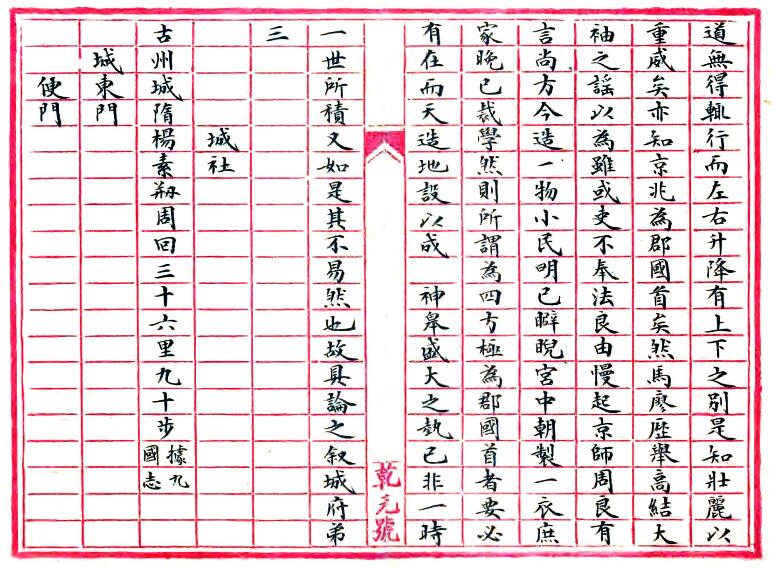 道無得輒行而左右升降有上下之別是知壯麗以
重威矣亦知京兆為郡國首矣然馬廖歷舉高結大
袖之謠以為雖或吏不奉法良由慢起京師周良有
言尚方今造一物小民明已睥睨宮中朝製一衣庶
家晚已裁學然則所謂為四方極為郡國首者要必
有在而天造地設以成　神皋盛大之埶已非一時
乾元號
一世所積又如是其不易然也故具論之叙城府弟
三
城社
古州城隋楊素刱周回三十六里九十步據九國志
城東門
便門